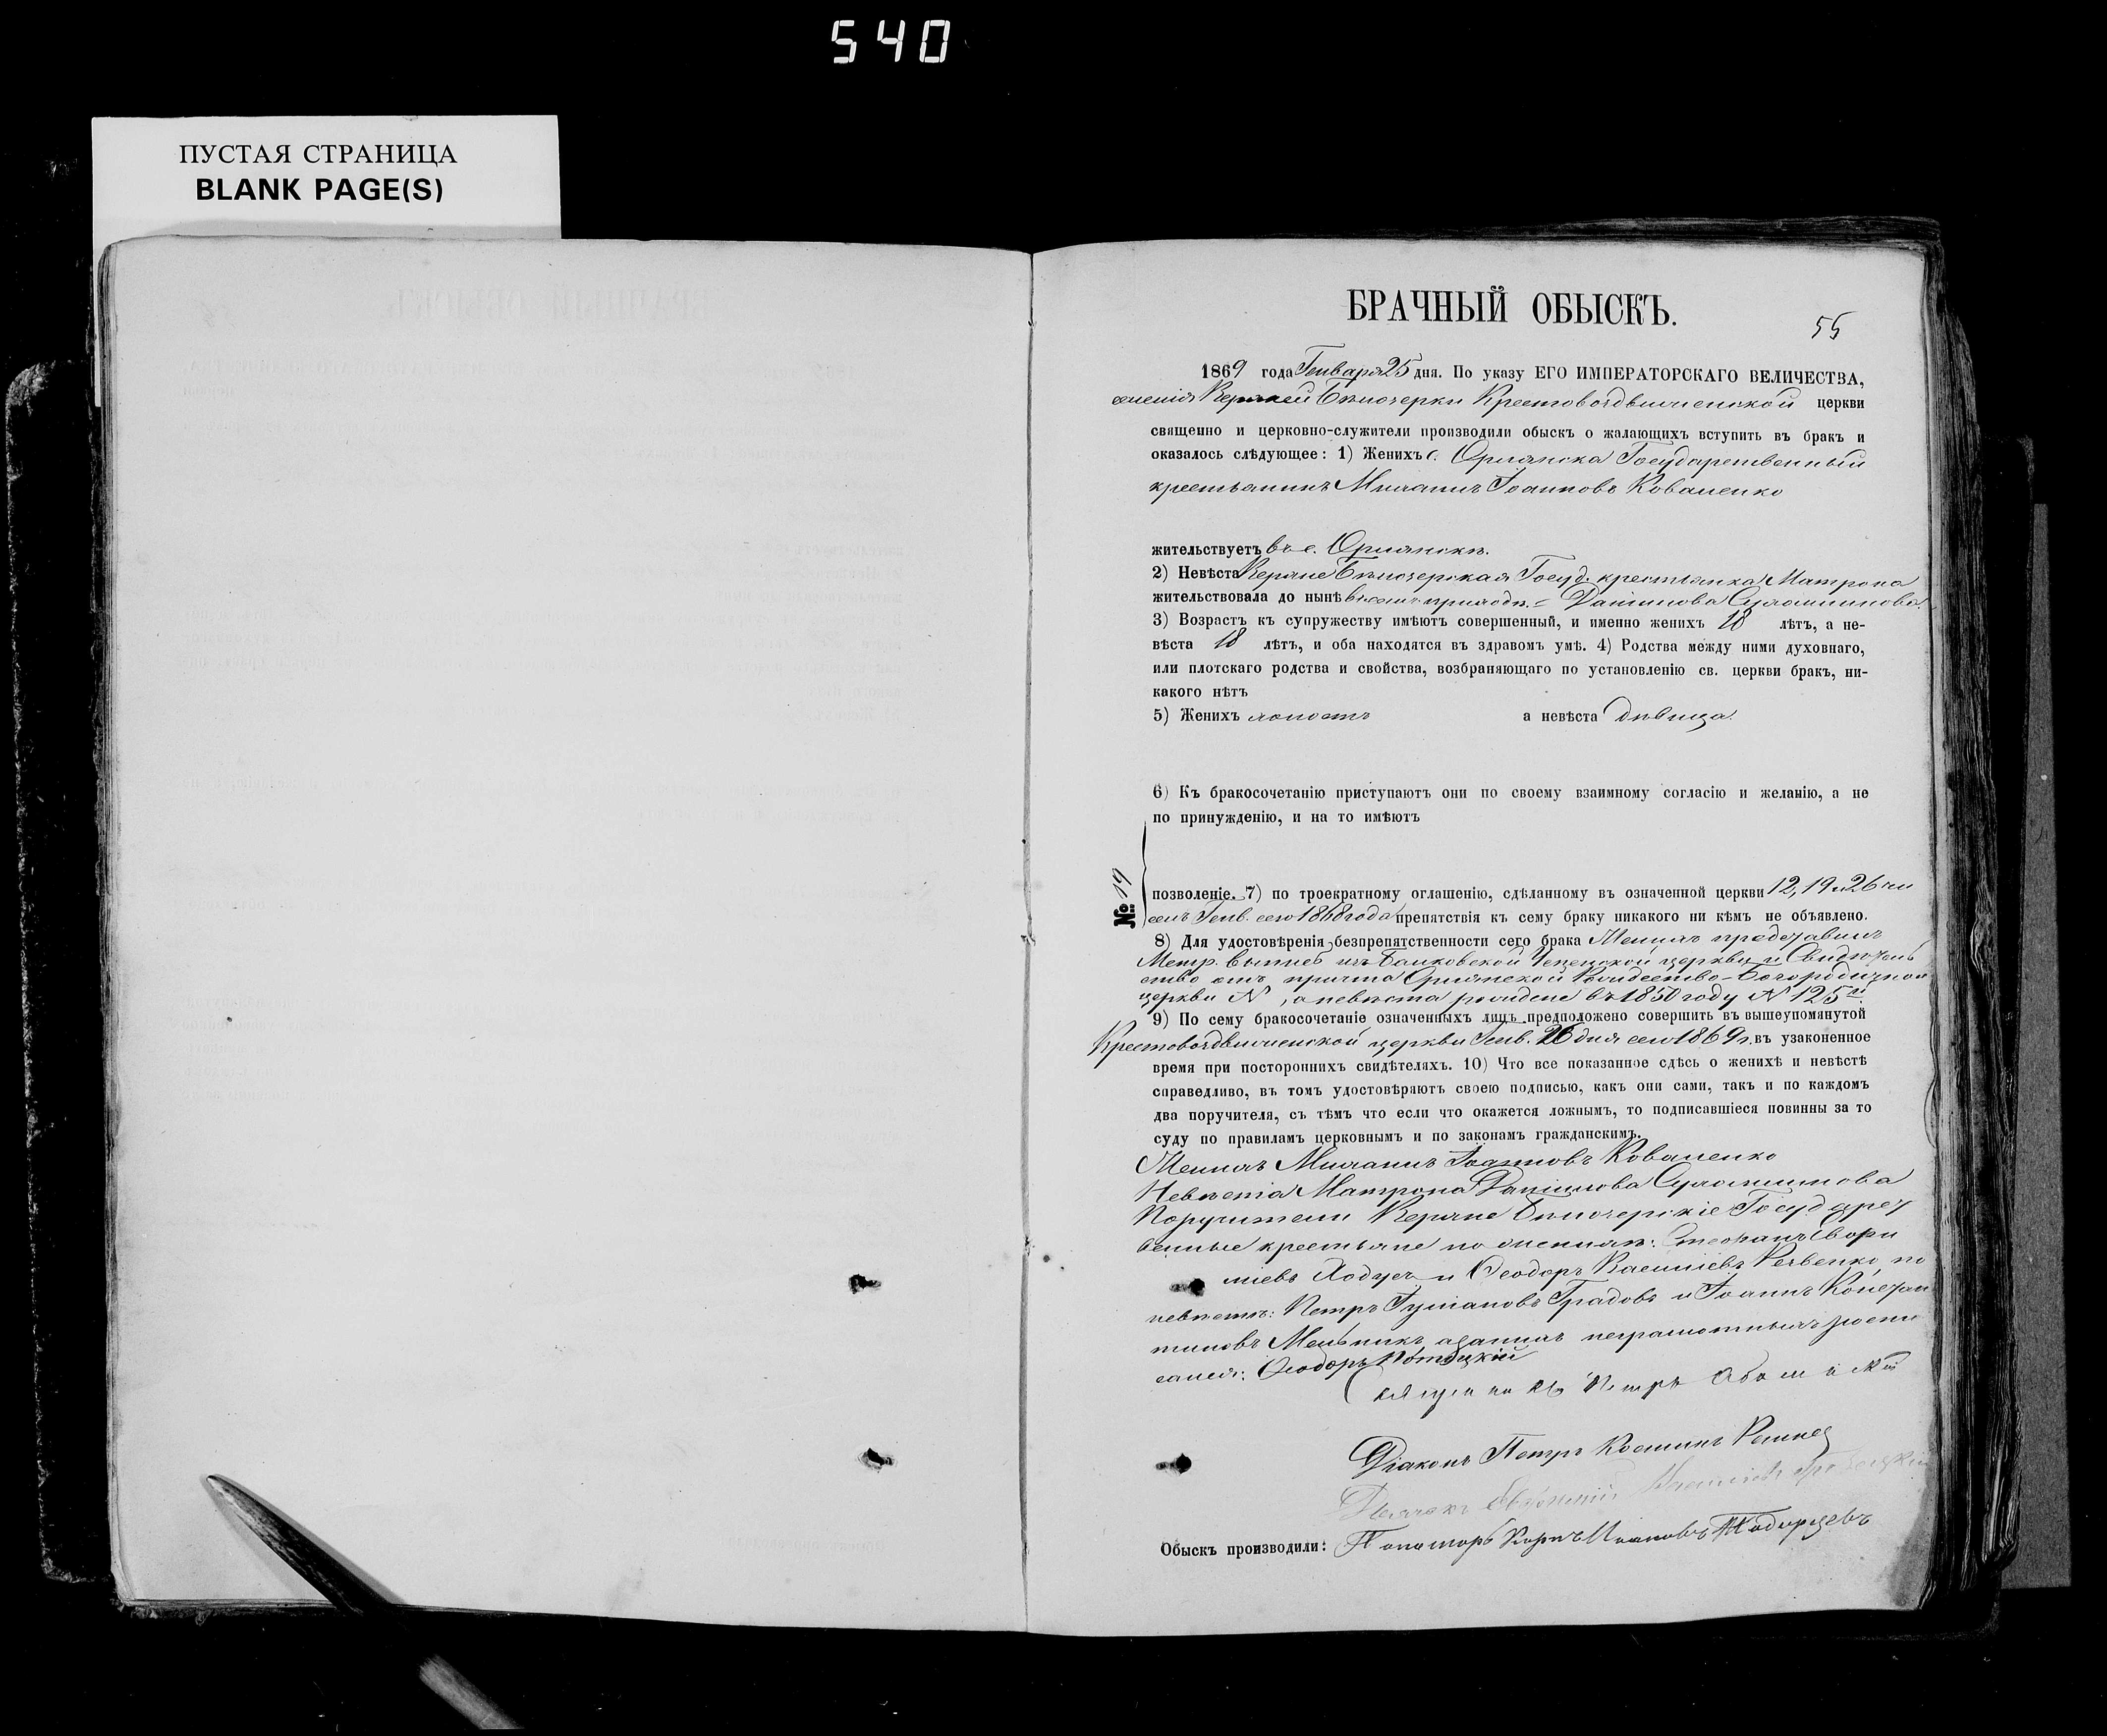 540
ПУСТАЯ СТРАНИЦА
BLANK PAGE(S)
БРАЧНЫЙ ОБЫСКЪ.
55
1869 года Генваря 25 дня. По указу ЕГО ИМПЕРАТОРСКАГО ВЕЛИЧЕСТВА,
Бѣлозерки Крестовоздвиженской церкви
священно и церковно-служители производили обыскъ о жалающихъ вступить въ бракъ и
оказалось слѣдующее: 1) Женихъ с. Орлянска Государственный
крестьянинъ Михаилъ Іоанновъ Коваленко
жительствуетъ въ с. Орлянскѣ.
2) Невѣста Бѣлозерская Госуд. крестьянка Матрона
жительствовала до нынѣ въ семъ приходѣ = Даніилова
3) Возрастъ къ супружеству имѣютъ совершенный, и именно женихъ 18 лѣтъ, а не-
вѣста 18 лѣтъ, и оба находятся въ здравомъ умѣ. 4) Родства между ними духовнаго,
или плотскаго родства и свойства, возбраняющаго по установленію св. церкви бракъ, ни-
какого нѣтъ
5) Женихъ холостъ а невѣста дѣвица.
6) Къ бракосочетанію приступаютъ они по своему взаимному согласію и желанію, а не
по принужденію, и на то имѣютъ
№: 19
позволеніе. 7) по троекратному оглашенію, сдѣланному въ означенной церкви 12, 19 и 26 чи
селъ Генв. сего 1868 года препятствія къ сему браку никакого ни кѣмъ не объявлено.
8) Для удостовѣренія безпрепятственности сего брака Женихъ представилъ
Метр. выпись изъ Успенской церкви и Свидѣтель
ство отъ причта Орлянской Рождество-Богородичной
церкви N , а невѣста рождена въ 1850 году N 125й.
9) По сему бракосочетаніе означенныхъ лицъ предположено совершить въ вышеупомянутой
Крестовоздвиженской церкви Генв. 26 дня сего 1869 г. въ узаконенное
время при постороннихъ свидѣтеляхъ. 10) Что все показанное сдѣсь о женихѣ и невѣстѣ
справедливо, въ томъ удостовѣряютъ своею подписью, какъ они сами, такъ и по каждомъ
два поручителя, съ тѣмъ что если что окажется ложнымъ, то подписавшіеся повинны за то
суду по правиламъ церковнымъ и по законамъ гражданскимъ.
Женихъ Михаилъ Іоанновъ Коваленко
Невѣста Матрона Даніилова
Поручители Бѣлозерскіе Государст
венные крестьяне по женихѣ: Стефанъ
и Ѳеодоръ по
невѣстѣ: Петръ Градовъ и Іоаннъ Констан
тиновъ Мельникъ, а за нихъ неграмотныхъ роспи
сался: Ѳеодоръ
Петръ
Діаконъ Петръ Косминъ
Дьячекъ
Обыскъ производили: Пономарь